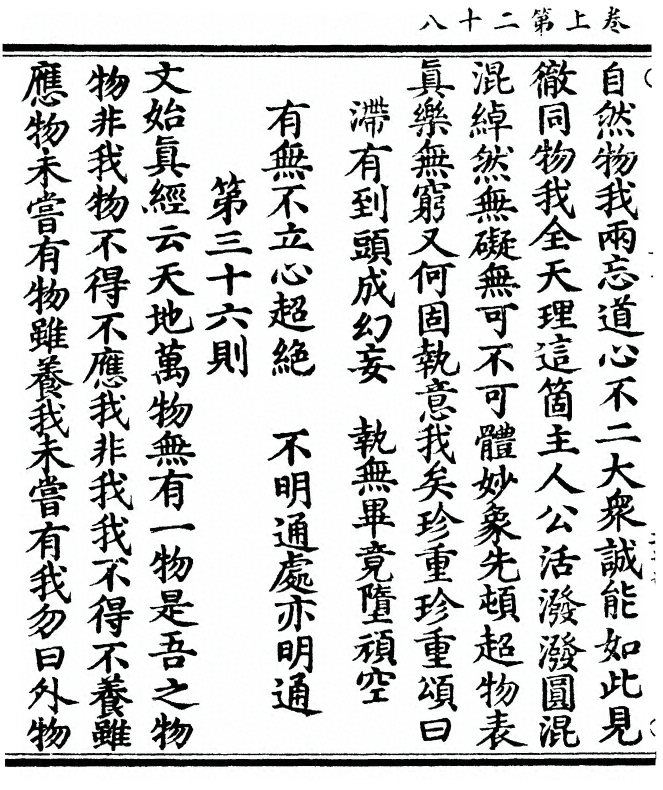 卷上第二十八
自然物我兩忘道心不二大衆誠能如此見
徹同物我全天理這箇主人公活潑潑圓混
混綽然無礙無可不可體妙象先頓超物表
眞樂無窮又何固執意我矣珍重珍重頌曰
滯有到頭成幻妄　執無畢竟墮頑空
有無不立心超絶　不明通處亦明通
第三十六則
文始眞經云天地萬物無有一物是吾之物
物非我物不得不應我非我我不得不養雖
應物未嘗有物雖養我未嘗有我勿曰外物